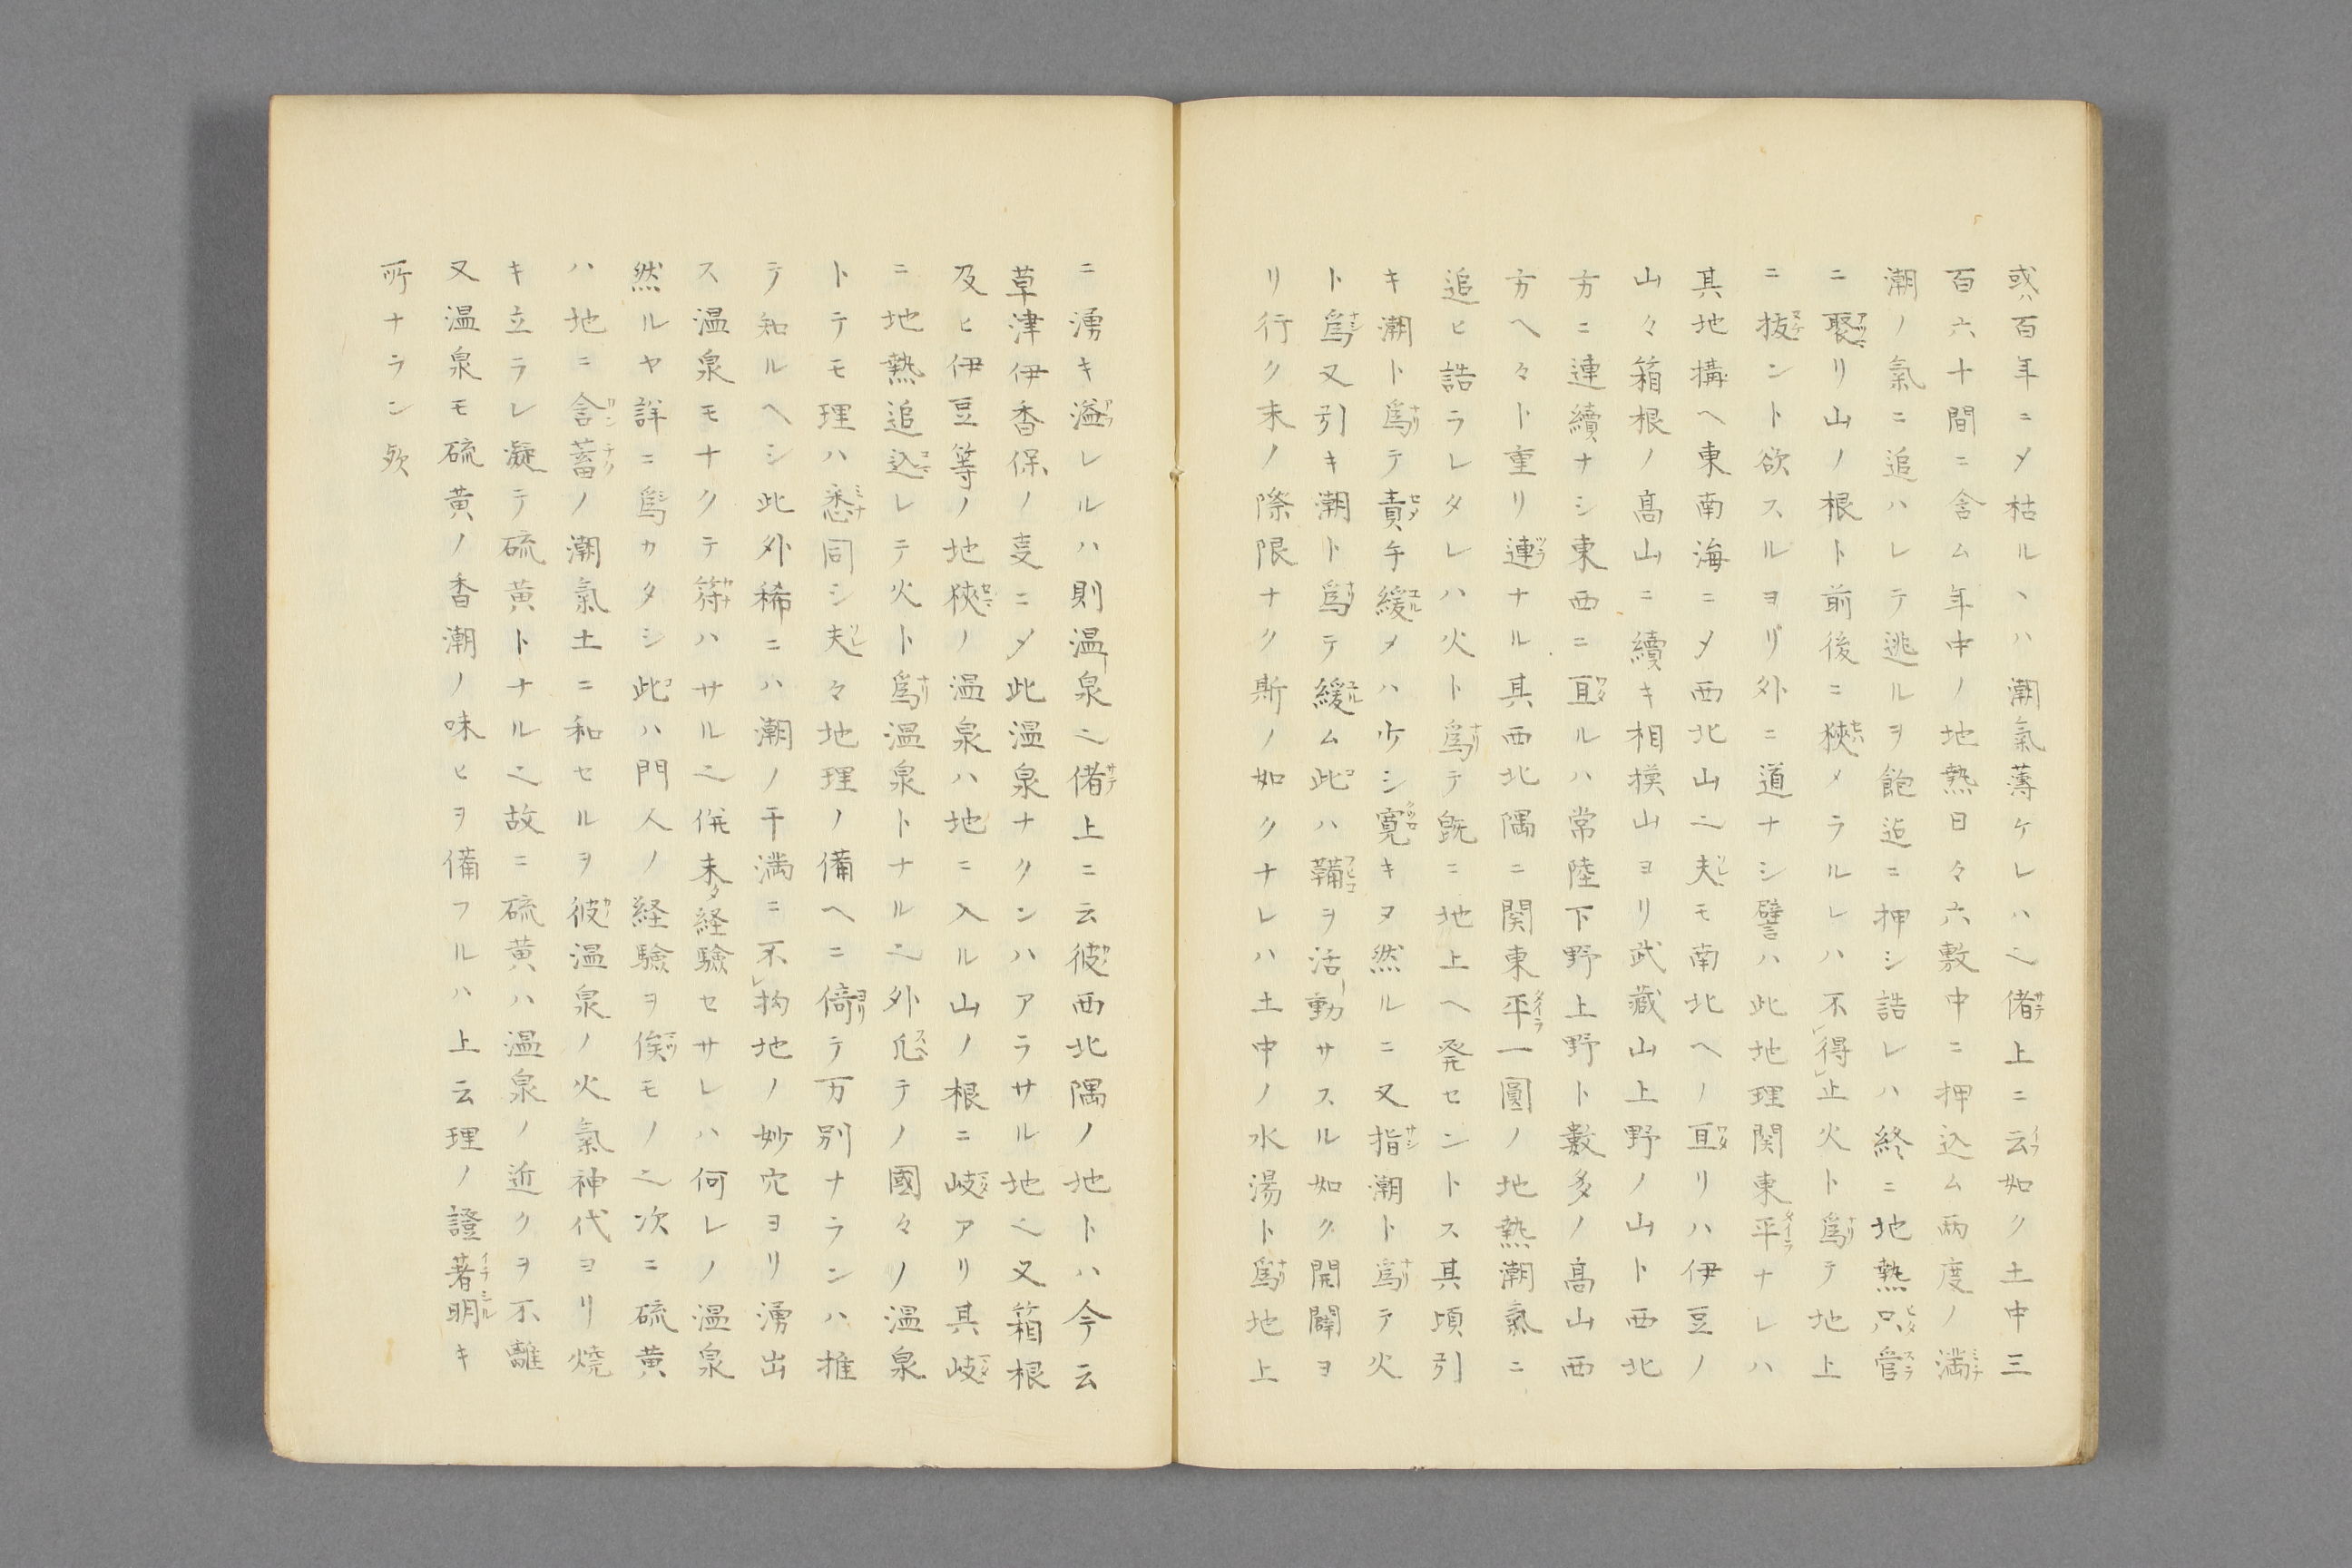 或ハ百年ニ〆枯ルヽハ潮氣薄ケレハ也偖上ニ云如ク土中三
百六十間ニ含ム年中ノ地熱日々六敷中ニ押込ム両度ノ満
潮ノ氣ニ追ハレテ逃ルヲ飽迄ニ押シ誥レハ終ニ地熱只管
ニ聚リ山ノ根ト前後ニ狹メラルレハ不得止火ト爲テ地上
ニ抜ント欲スルヨリ外ニ道ナシ譬ハ此地理関東平ナレハ
其地搆ヘ東南海ニ〆西北山也夫モ南北ヘノ亘リハ伊豆ノ
山々箱根ノ髙山ニ續キ相摸山ヨリ武蔵山上野ノ山ト西北
方ニ連續ナシ東西ニ亘ルハ常陸下野上野ト數多ノ髙山西
方ヘ々ト重リ連ナル其西北隅ニ関東平一圓ノ地熱潮氣ニ
追ヒ誥ラレタレハ火ト爲テ既ニ地上ヘ発セントス其頃引
キ潮ト爲テ責手緩メハ少シ寛キヌ然ルニ又指潮ト爲テ火
ト爲又引キ潮ト爲テ緩ム此ハ鞴ヲ活動サスル如ク開闢ヨ
リ行ク末ノ際限ナク斯ノ如クナレハ土中ノ水湯ト爲地上
ニ湧キ溢レルハ則温泉也偖上ニ云彼西北隅ノ地トハ今云
草津伊香保ノ叓ニ〆此温泉ナクンハアラサル地也又箱根
及ヒ伊豆等ノ地狹ノ温泉ハ地ニ入ル山ノ根ニ岐アリ其岐
ニ地熱追込レテ火ト爲温泉トナル也外凡テノ國々ノ温泉
トテモ理ハ悉同シ夫々地理ノ備ヘニ倚テ万別ナランハ推
テ知ルヘシ此外稀ニハ潮ノ干満ニ不拘地ノ妙穴ヨリ湧出
ス温泉モナクテ符ハサル也併未タ経驗セサレハ何レノ温泉
然ルヤ詳ニ爲カタシ此ハ門人ノ経驗ヲ俟モノ也次ニ硫黄
ハ地ニ含蓄ノ潮氣土ニ和セルヲ彼温泉ノ火氣神代ヨリ焼
キ立ラレ凝テ硫黄トナル也故ニ硫黄ハ温泉ノ近クヲ不離
又温泉モ硫黄ノ香潮ノ味ヒヲ備フルハ上云理ノ證著明キ
所ナラン歟